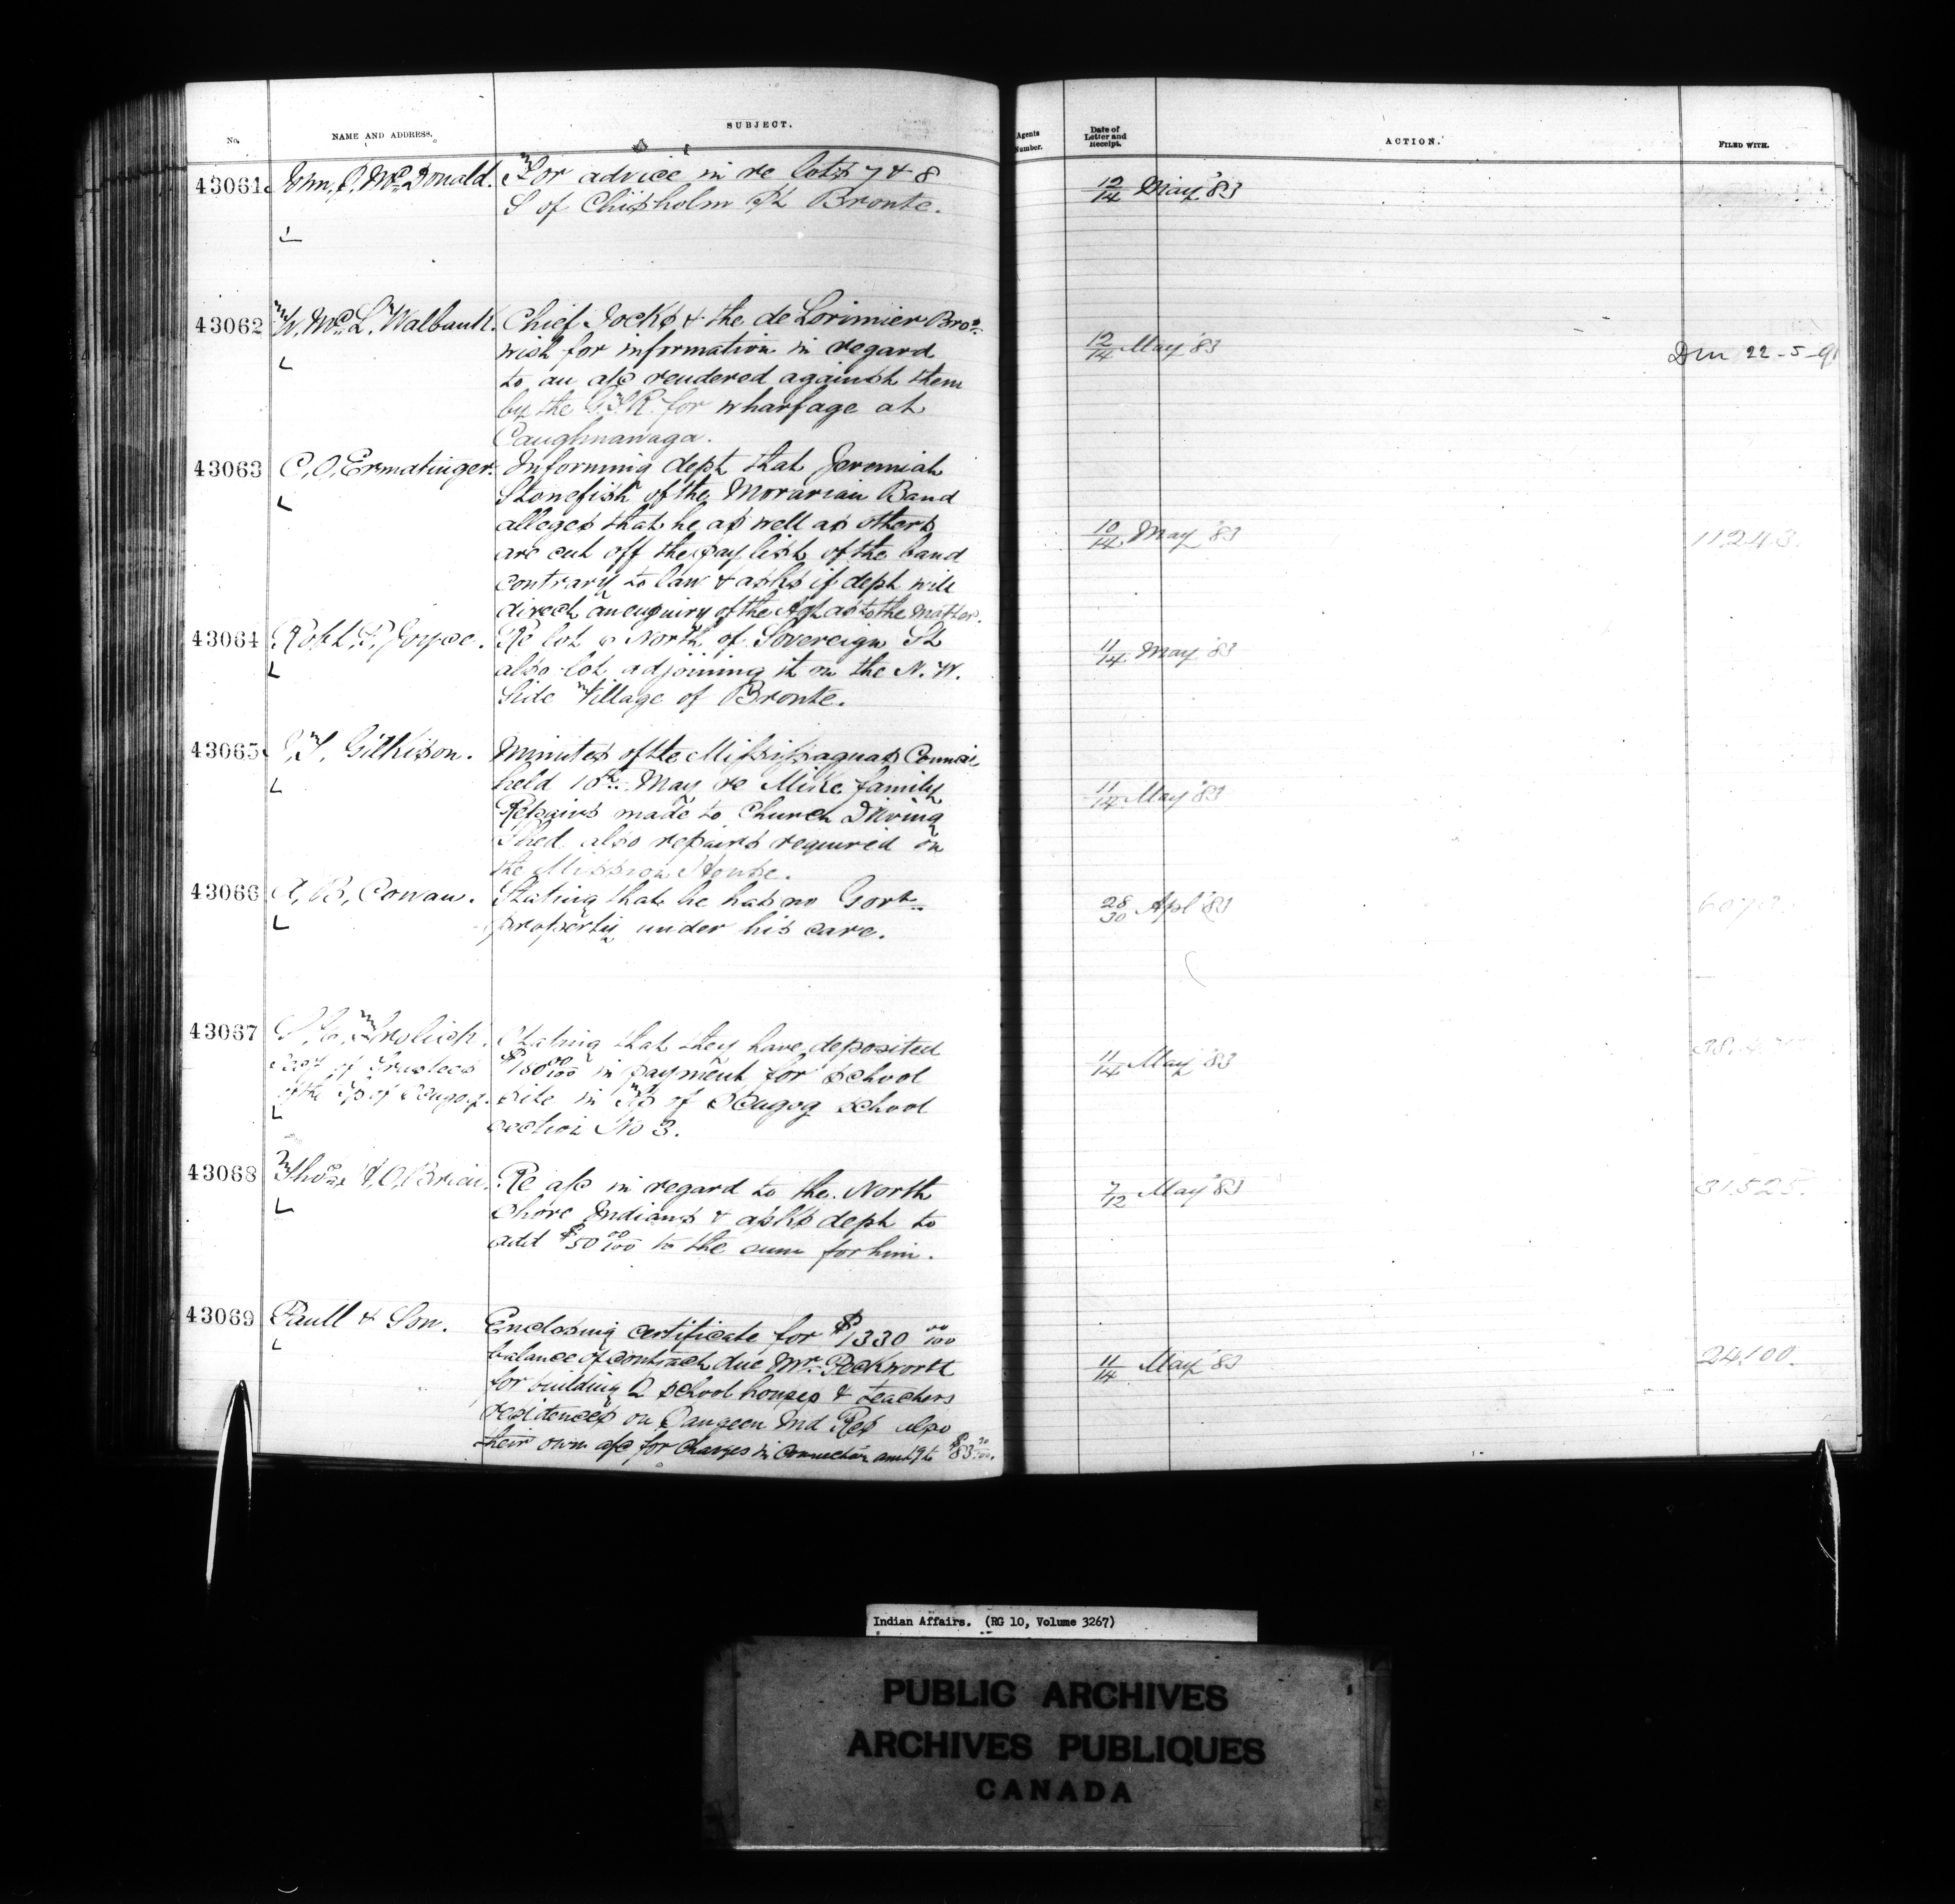 No.
NAME AND ADDRESS.
SUBJECT.
Agents Number.
Date of Letter and Receipt.
ACTION.
FILED WITH.
43061 McDonald. For advice in re lots 7 & 8
S of Chisholm St Bronte.
12/14 May '83
43062 W. McL. Walbank. Chief Jocks & the de Lorimier Bros
wish for information in regard
to an a/c rendered against them
by the G.T.R. for wharfage at
Caughnawaga.
12/14 May '83
22-5-9
43063 C. O. Ermatinger. Informing dept that Jeremiah
Stonefish of the Moravian Band
alleges that he as well as others
are cut off the pay list of the band
contrary to law & asks if dept will
direct an enquiry of the Agt as to the matter.
10/14 May '83
11243.
43064 Robt. Joyce. Re lot North of Sovereign St
also lot adjoining it on the N.W.
Side Village of Bronte.
11/14 May '83
43065 J. T. Gilkison. Minutes of the Mississaguas Council
held 10th May re Mike family
Repairs made to Church Driving
Shed also repairs required on
the Mission House.
11/14 May '83
43066 A. B. Cowan. Stating that he has no Govt
property under his care.
28/30 Apl '83
43067 Stating that they have deposited
Secy of Trustees $180 00/100 in payment for school
of the Tp of Scugog. site in Tp of Scugog school
section No 3.
11/14 May '83
43068 Thos. O'Brien. Re a/c in regard to the North
Shore Indians & asks dept to
add $50 00/100 to the sum for him.
7/12 May '83
31.525.
43069 Paull & Son. Enclosing certificate for $1330 00/100
balance of contract due Mr. Peckworth
for building 2 school houses & teachers
residences on Saugeen Ind Res also
their own a/c for charges in connection amtg to $83
11/14 May '83
24.100.
Indian Affairs. (RG 10, Volume 3267)
PUBLIC ARCHIVES
ARCHIVES PUBLIQUES
CANADA